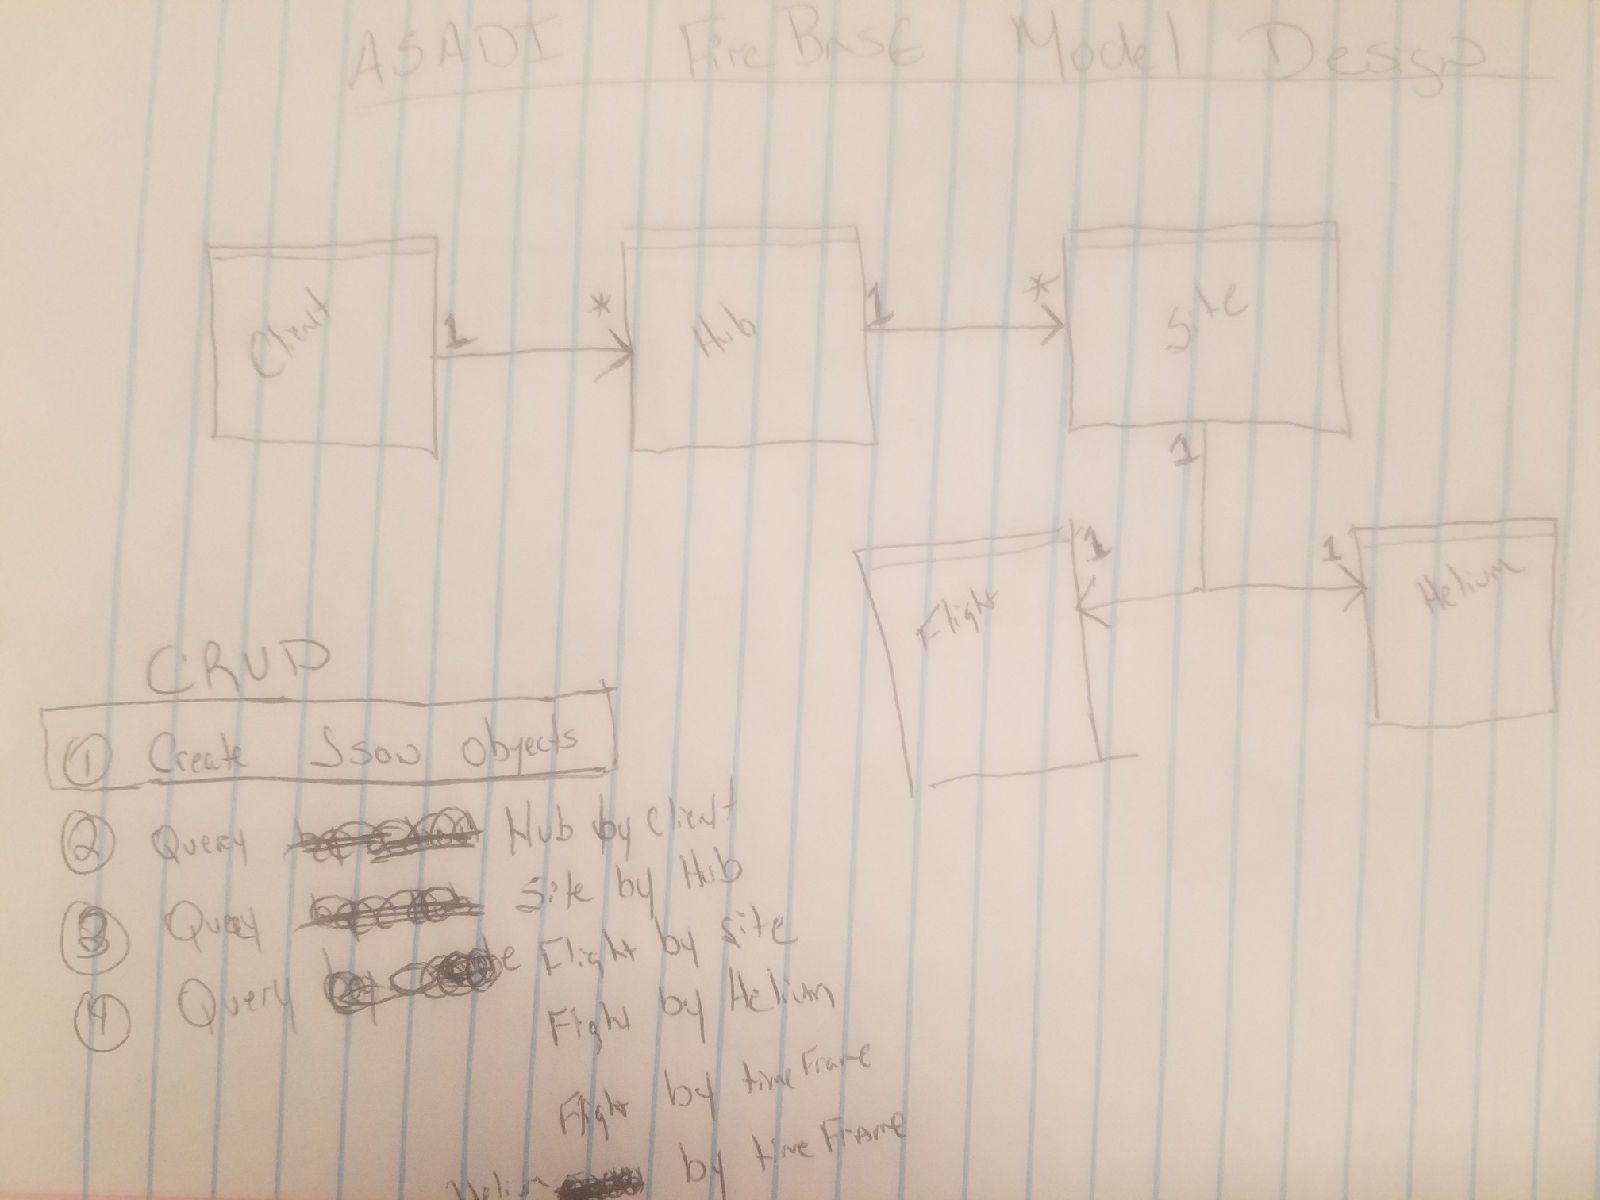 ASADI FireBASE Model Design
Client 1 * Hub 1 * Site
1
Flight 1 1 Helium
CRUD
① Create Json Objects
② Query Hub by Client
③ Query Site by Hub
④ Query Flight by Site
Flight by Helium
Flight by timeFrame
Helium by timeFrame